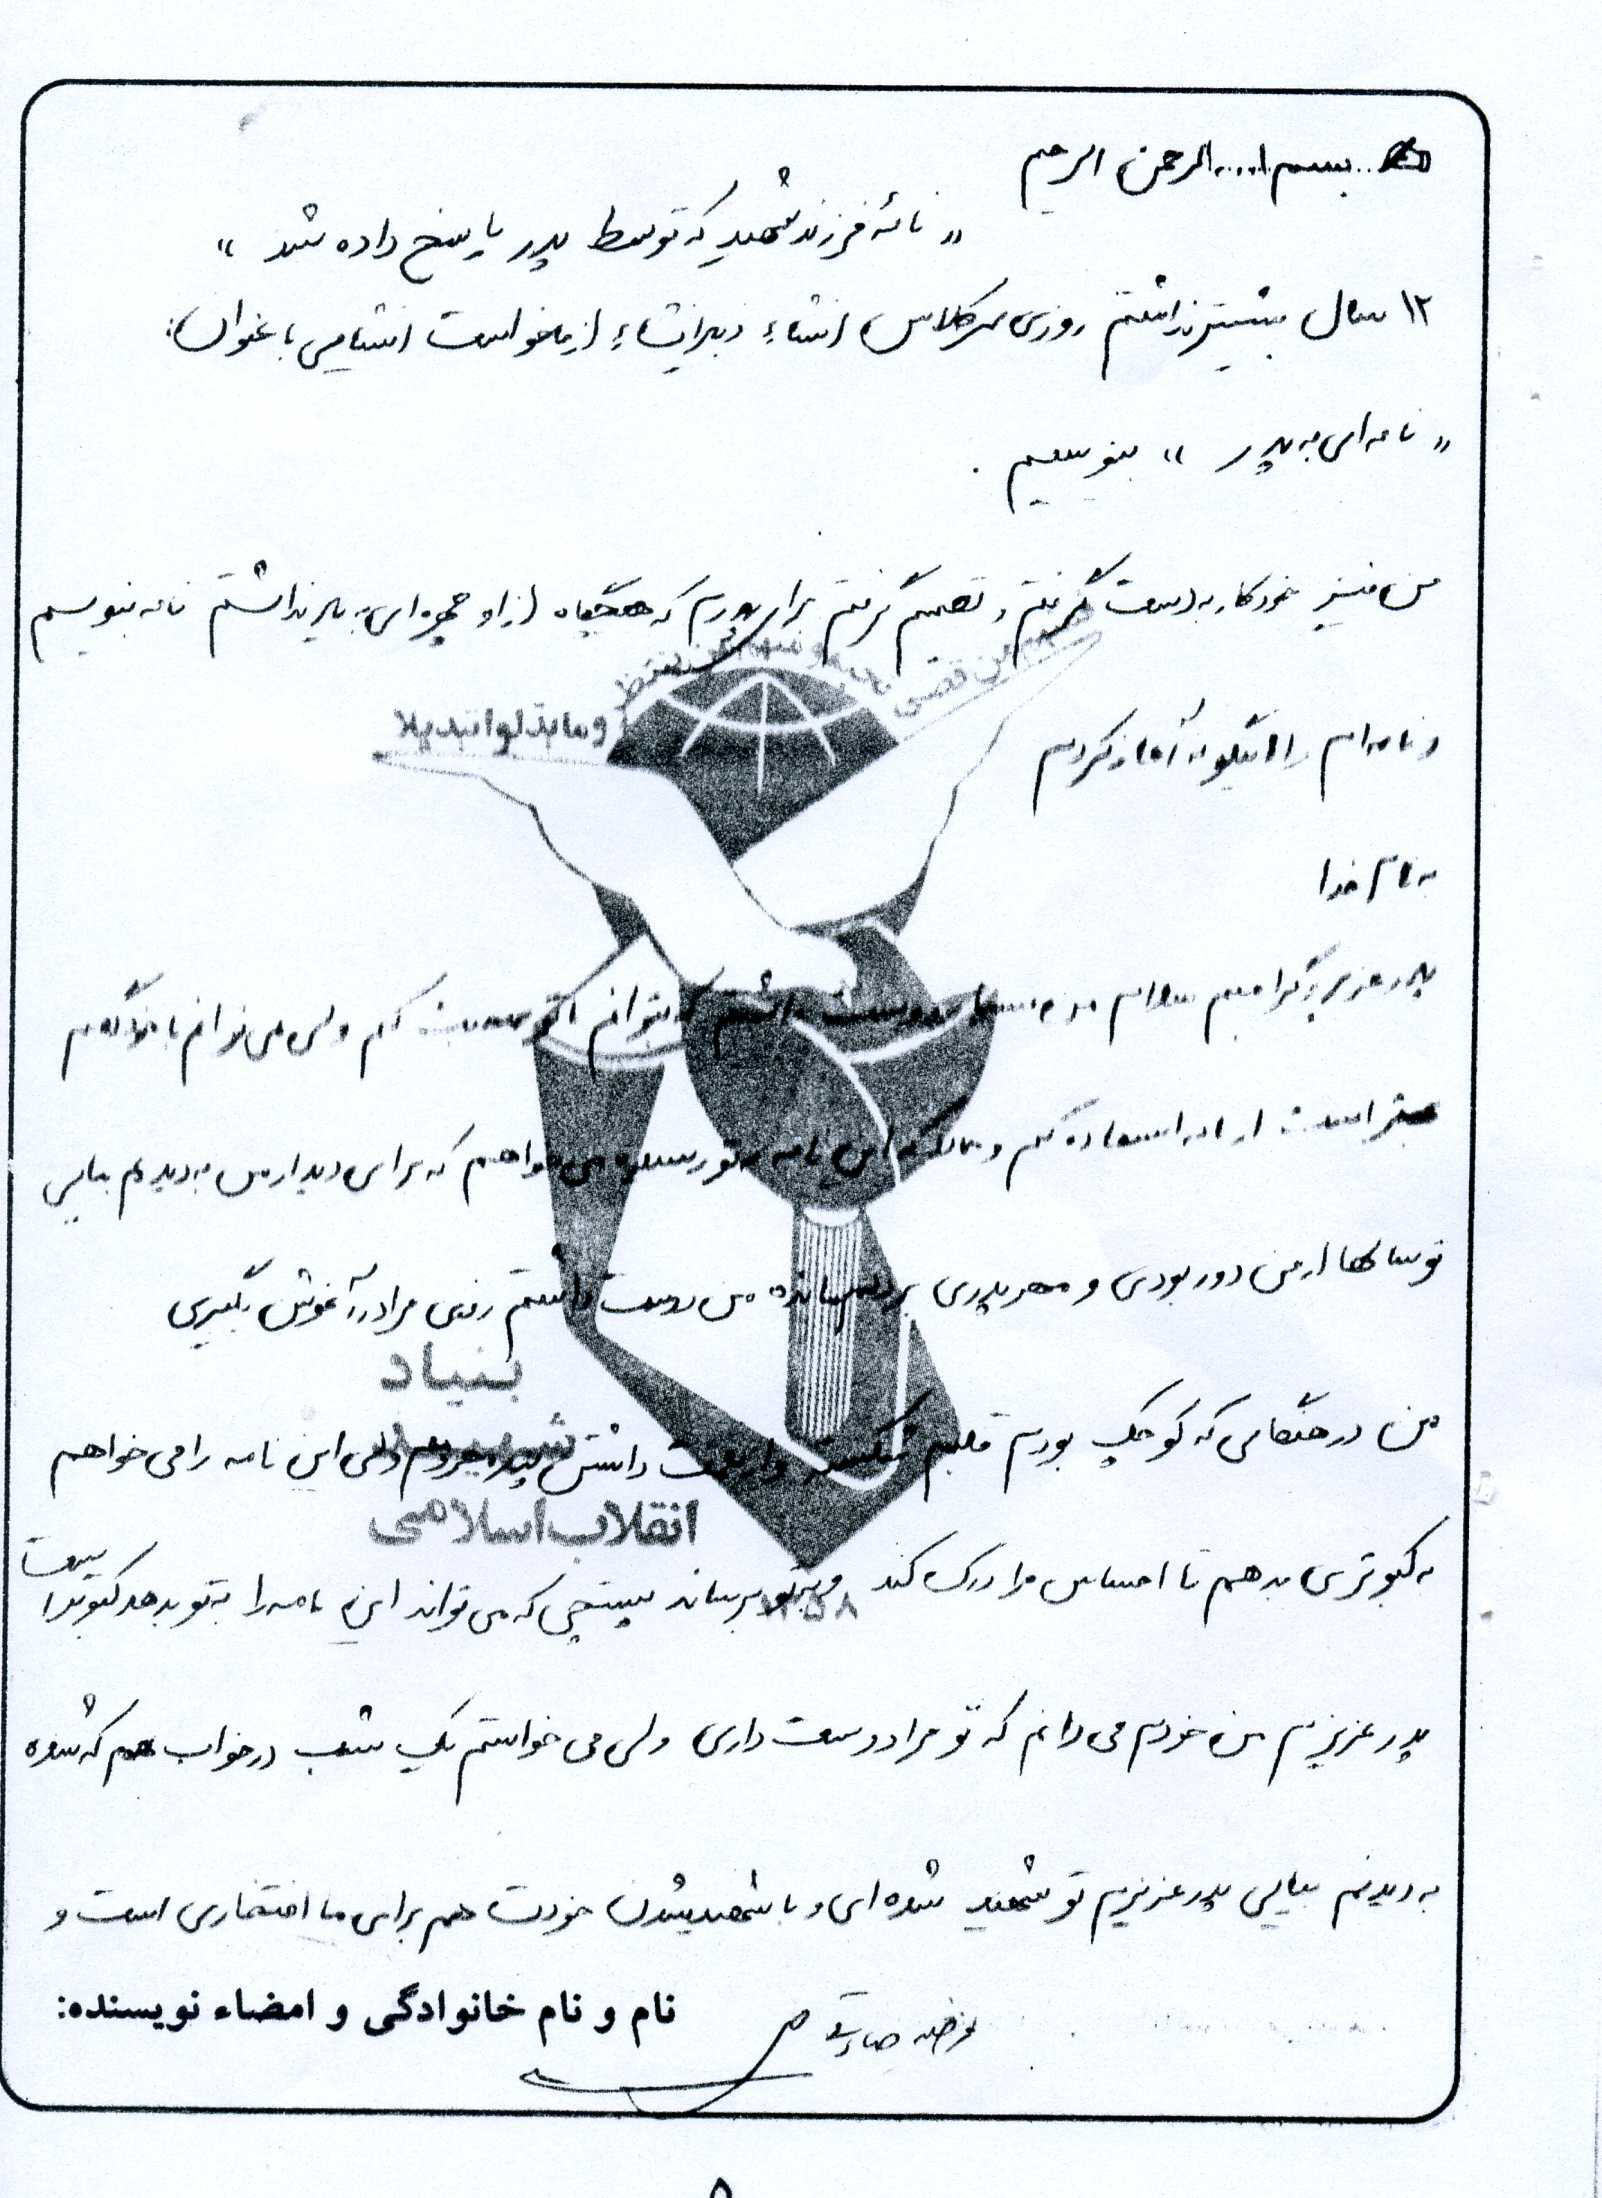 بسم ا... الرحمن الرحیم
« نامهٔ فرزند شهید که توسط پدر پاسخ داده شد »
۱۲ سال بیشتر نداشتم روزی سر کلاس انشاء دبیر انشاء از ما خواست انشایی با عنوان:
« نامه ای به پدر » بنویسیم .
من نیز خودکار به دست گرفتم و تصمیم گرفتم برای پدرم که هیچگاه از او چهره ای به یاد نداشتم نامه بنویسم
و نامه ام را اینگونه آغاز کردم
به نام خدا
پدر عزیز و گرامیم سلام دوست داشتم که بتوانم با تو صحبت کنم ولی می توانم با خود گویم
بهتر است از نامه استفاده کنم و هنگامی که این نامه به تو رسید می خواهم که برای دیدار من به دیدنم بیایی
تو سالها از من دور بودی و مهر پدری بر دلم مانده من دوست داشتم روزی مرا در آغوش بگیری
من در هنگامی که کوچک بودم قلبم شکست و از نعمت داشتن پدر محروم ولی این نامه را می خواهم
به کبوتری بدهم تا احساس مرا درک کند و به تو برساند پستچی که می تواند این نامه را به تو بدهد کبوتر است
پدر عزیزم من خودم می دانم که تو مرا دوست داری ولی می خواستم یک شب در خواب هم که شده
به دیدنم بیایی پدر عزیزم تو شهید شده ای و با شهید شدن خودت هم برای ما افتخاری است و
نام و نام خانوادگی و امضاء نویسنده:
بنیاد
شهید
انقلاب اسلامی
۱۳۵۸
۵